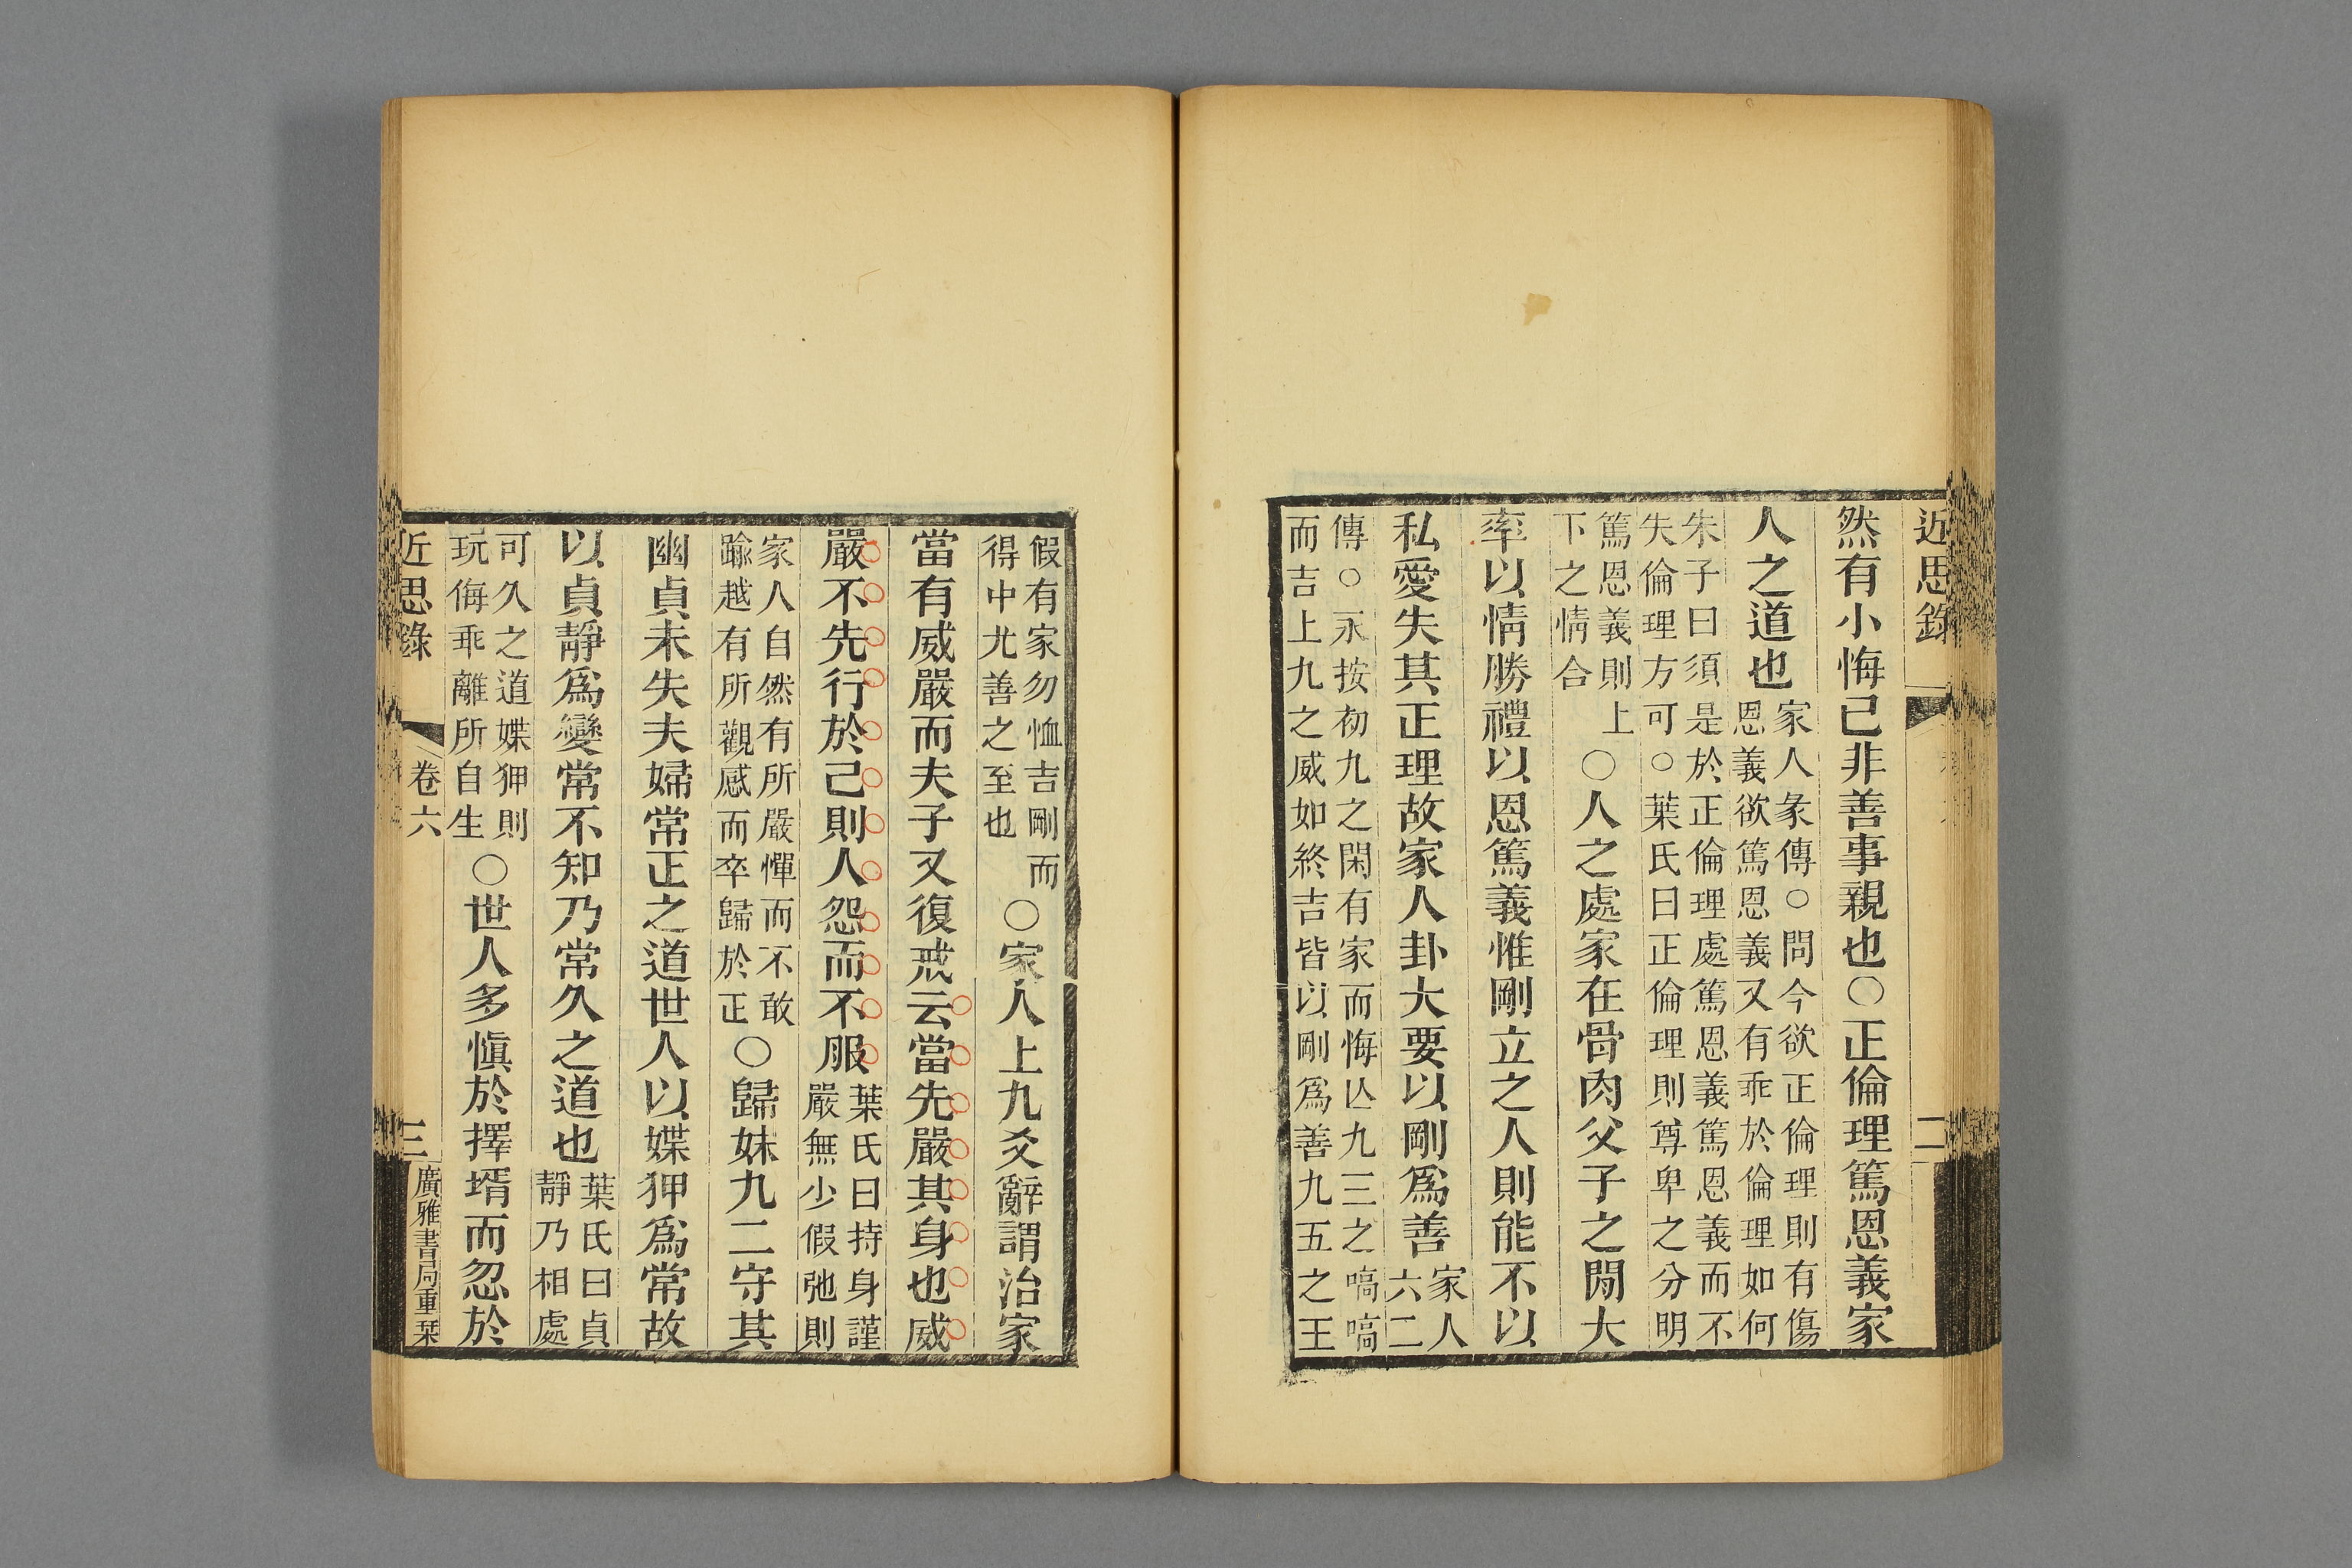 近思錄
二
然有小悔己非善事親也○正倫理篤恩義家
人之道也
家人彖傳○問今欲正倫理則有傷
恩義欲篤恩義又有乖於倫理如何
朱子曰須是於正倫理處篤恩義篤恩義而不
失倫理方可○葉氏曰正倫理則尊卑之分明
篤恩義則上
下之情合
○人之處家在骨肉父子之閒大
率以情勝禮以恩篤義惟剛立之人則能不以
私愛失其正理故家人卦大要以剛爲善
家人
六二
傳○永按初九之閑有家而悔亾九三之嗃嗃
而吉上九之威如終吉皆以剛爲善九五之王
假有家勿恤吉剛而
得中尤善之至也
○家人上九爻辭謂治家
當有威嚴而夫子又復戒云當先嚴其身也威
嚴不先行於己則人怨而不服
葉氏曰持身謹
嚴無少假弛則
家人自然有所嚴憚而不敢
踰越有所觀感而卒歸於正
○歸妹九二守其
幽貞未失夫婦常正之道世人以媟狎爲常故
以貞靜爲變常不知乃常久之道也
葉氏曰貞
靜乃相處
可久之道媟狎則
玩侮乖離所自生
○世人多慎於擇壻而忽於
近思錄
卷六
三
廣雅書局重栞